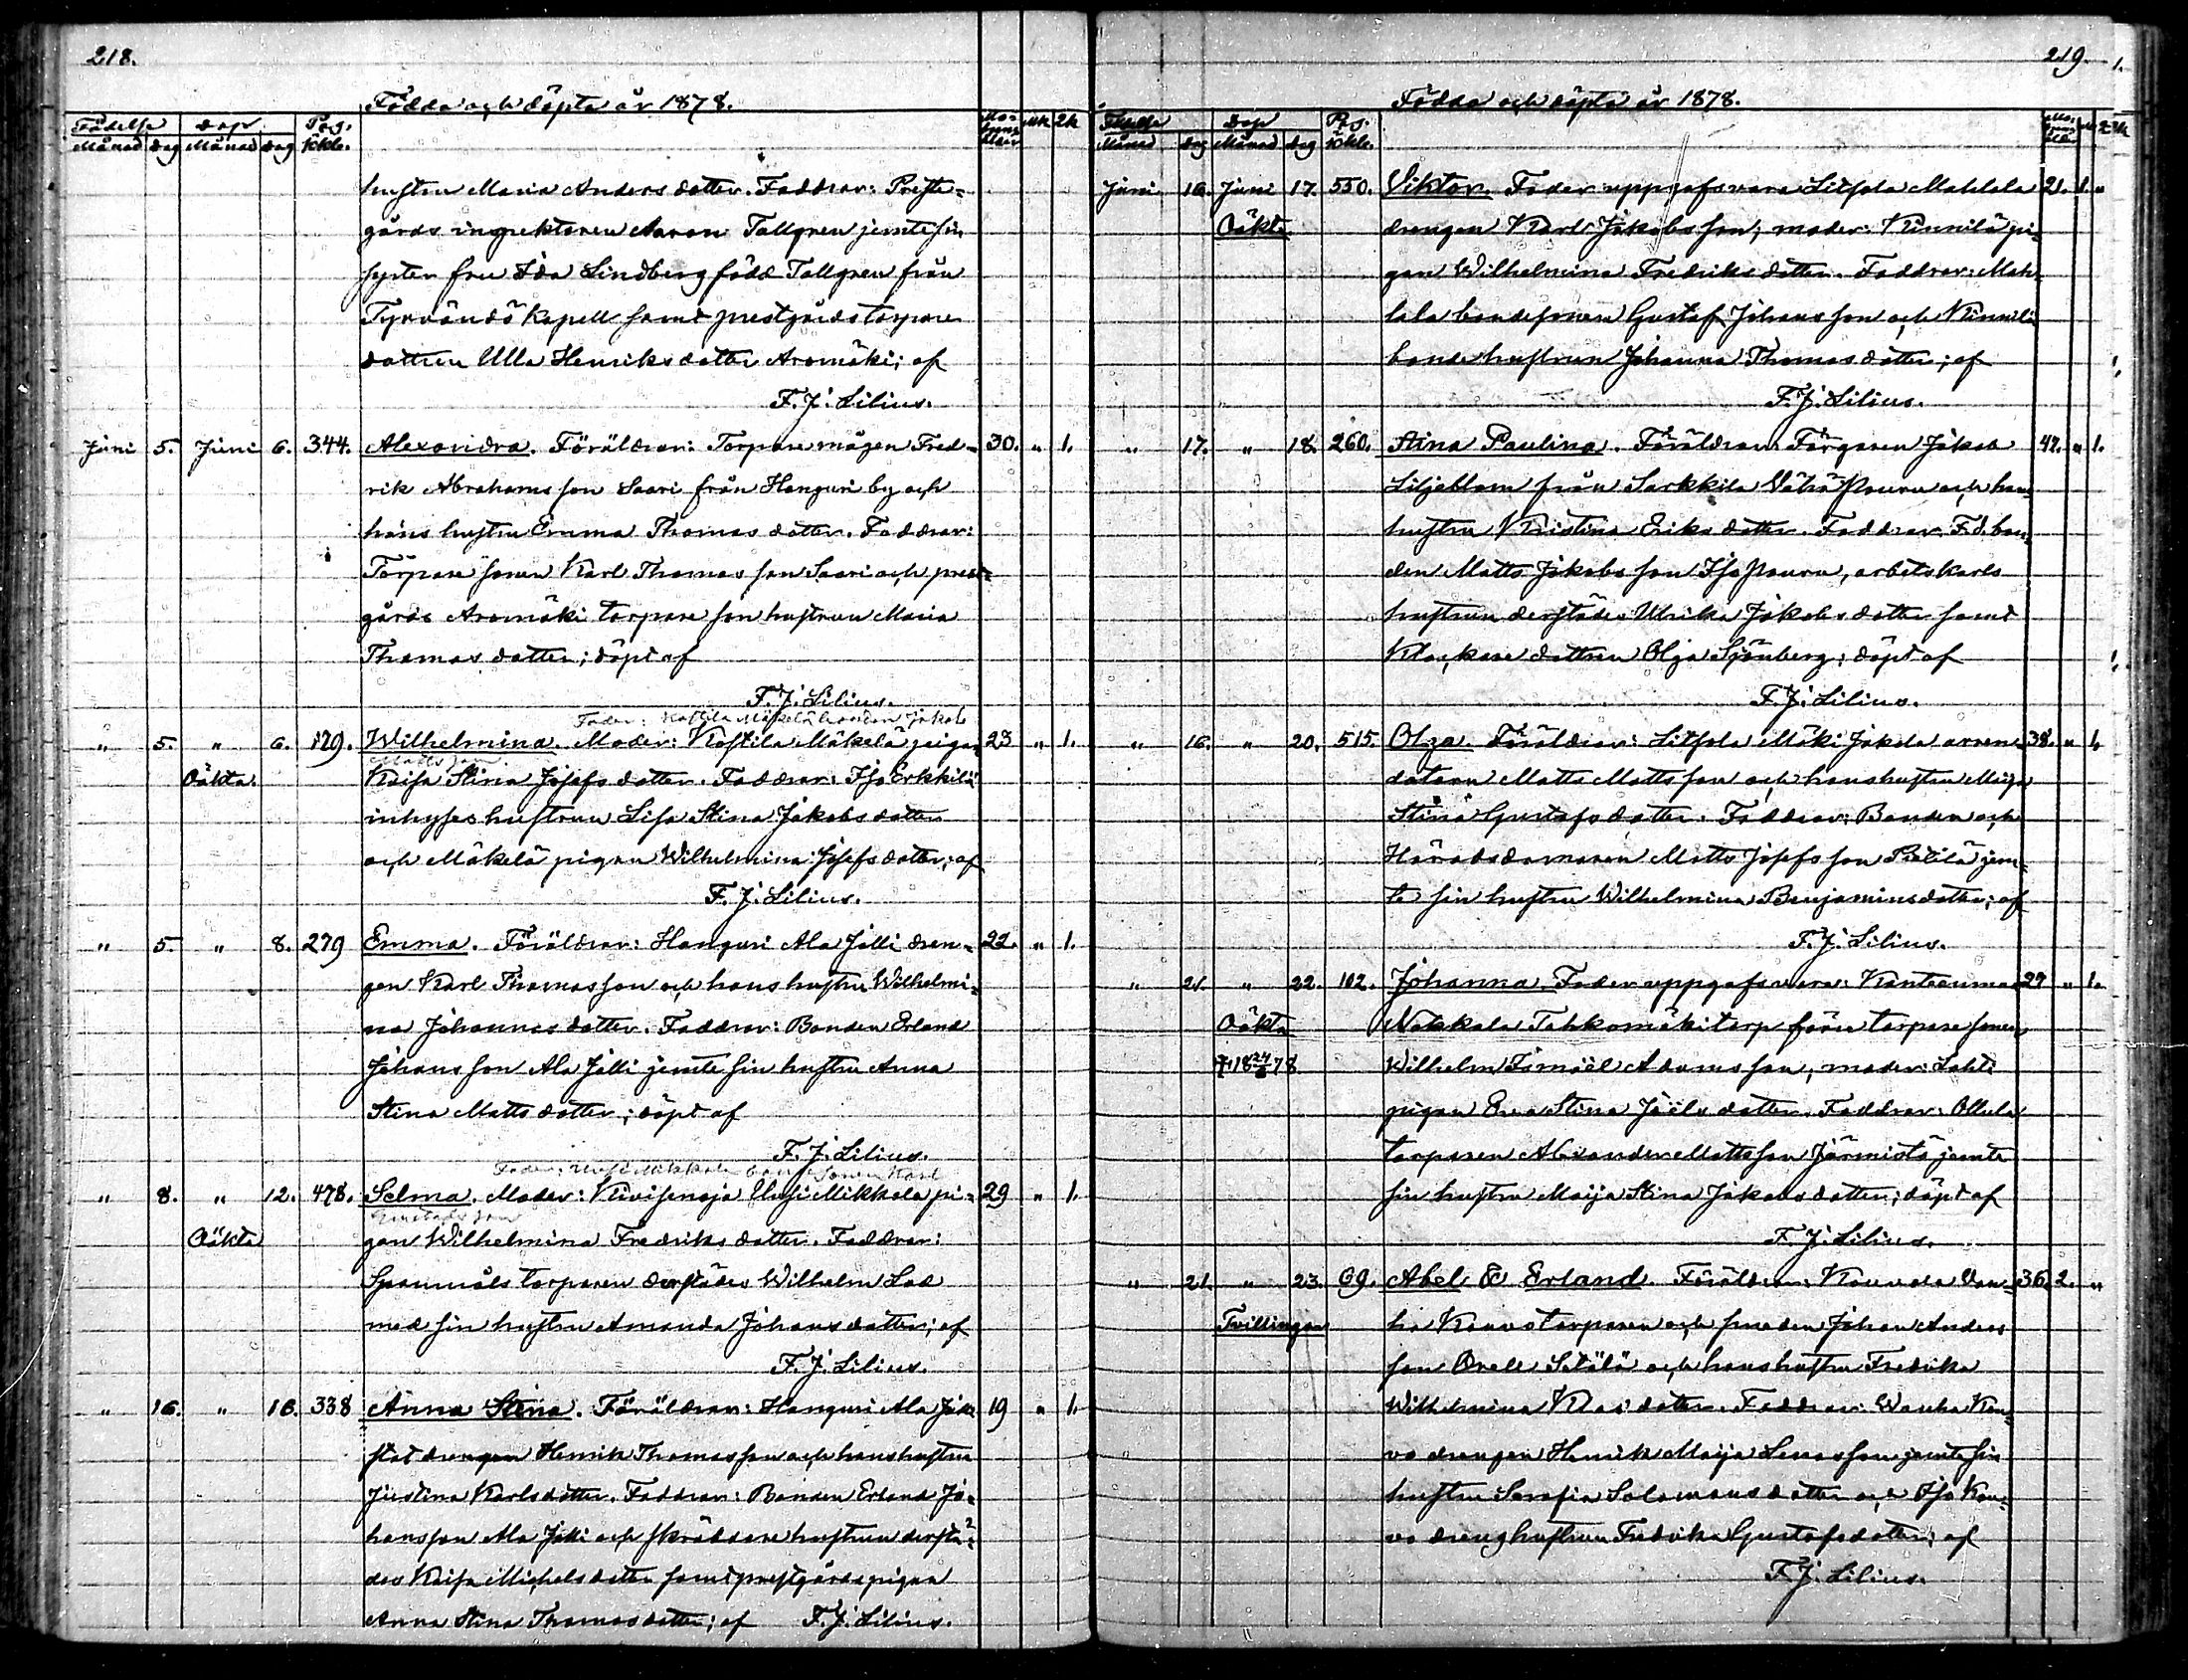 218.
Födda och döpta år 1878.
Födelse Dop Pag. i kkb. Moderns ålder Mk Qk
Månad Dag Månad Dag
hustru Maria Andersdotter. Faddrar: Preste-
gårds inspektoren Aaron Tallgren jemte sin
syster fru Ida Lindberg född Tallgren från
Tyrväändö kapell samt prestgårds torpare
dottren Ulla Henriksdotter Aromäki; af
F. J. Lilius.
Juni 5. Juni 6. 344. Alexandra. Föräldrar: Torpare mågen Fred- 30. " 1.
rik Abrahamsson Saari från Hanguri by och
hans hustru Emma Thomasdotter. Faddrar:
Torpare sonen Karl Thomasson Saari och prest-
gårds Aromäki torpare son hustrun Maria
Thomasdotter; döpt af
F. J. Lilius.
Fader: Kostila Mäkelä bonden Jakob
" 5. " 6. 129. Wilhelmina. Moder: Kostila Mäkelä pigan 23 " 1.
Mattsson.
Oäkta. Kaisa Stina Josefsdotter. Faddrar: Iso Erkkilä
inhyses hustrun Lisa Stina Jakobsdotter
och Mäkelä pigan Wilhelmina Josefsdotter; af
F. J. Lilius.
" 5. " 8. 279 Emma. Föräldrar: Hanguri Ala Jälli dren- 22. " 1.
gen Karl Thomasson och hans hustru Wilhelmi-
na Johannesdotter. Faddrar: Bonden Erland
Johansson Ala Jälli jemte sin hustru Anna
Stina Mattsdotter; döpt af
F. J. Lilius.
Fader: Uusi Mikkola bonde sonen Karl
" 8. " 12. 478. Selma. Moder: Kivisenoja Uusi Mikkola pi- 29 " 1.
Gustafsson
Oäkta gan Wilhelmina Fredriksdotter. Faddrar:
Spannmåls torparen derstädes Wilhelm Lad
med sin hustru Amanda Johansdotter; af
F. J. Lilius.
" 16. " 16. 338 Anna Stina. Föräldrar: Hanguri Ala Jäli 19 " 1.
stat drengen Henrik Thomasson och hans hustru
Justina Karlsdotter. Faddrar: Bonden Erland Jo-
hansson Ala Jälli och skräddare hustrun derstä-
des Kaisa Michelsdotter samt prestgårds pigan
Anna Stina Thomasdotter; af F. J. Lilius.
219.
Födda och döpta år 1878.
Födelse Dop Pag. i kkb. Moderns ålder Mk Qk
Månad Dag Månad Dag
Juni 16. Juni 17. 550. Viktor. Fader uppgafs vara Litsola Mahlala 21. 1. "
Oäkta drengen Karl Jakobsson; moder: Kinnilä pi-
gan Wilhelmina Fredriksdotter. Faddrar: Mah-
lala bondesonen Gustaf Johansson och Kinnilä
bonde hustrun Johanna Thomasdotter; af
F. J. Lilius.
" 17. " 18. 260. Stina Paulina. Föräldrar: Färgaren Jakob 42. " 1.
Liljeblom från Sarkkila Vähä Pouru och hans
hustru Kristina Eriksdotter. Faddrar: F. d. bon-
den Matts Jakobsson Iso Pouru, arbetskarls
hustrun derstädes Ulrika Jakobsdotter samt
Klockare dottren Olga Sjönberg; döpt af
F. J. Lilius.
" 16. " 20. 515. Olga. Föräldrar: Litsola Mäki Jakola arren- 38. " 1.
datorn Matts Mattsson och hans hustru Maija
Stina Gustafsdotter. Faddrar: Bonden och
Häradsdomaren Matts Josefsson Pietilä jem-
te sin hustru Wilhelmina Benjaminsdotter; af
F. J. Lilius.
" 21. " 22. 102. Johanna. Fader uppgafs vara: Kanteenmaa 27 " 1.
Oäkta Nokkala Tahkomäki torp förre torpare sonen
† 18 24/8 78 Wilhelm Ismaël Adamsson, moder: Lahti
pigan Eva Stina Joëlsdotter. Faddrar: Ollila
torparen Alexander Mattsson Järmistö jemte
sin hustru Maija Stina Jakobsdotter; döpt af
F. J. Lilius.
" 21. " 23. 69. Abel & Erland. Föräldrar: Kouvola Van- 36. 2. "
Tvillingar ha Kouvo torparen och smeden Johan Anders-
son Orell Satälä och hans hustru Fredrika
Wilhelmina Klasdotter. Faddrar: Wanha Kou-
vo drengen Henrik Maija Lenasson jemte sin
hustru Serafia Salomonsdotter och Iso Kou-
vo dreng hustrun Fredrika Gustafsdotter; af
F. J. Lilius.